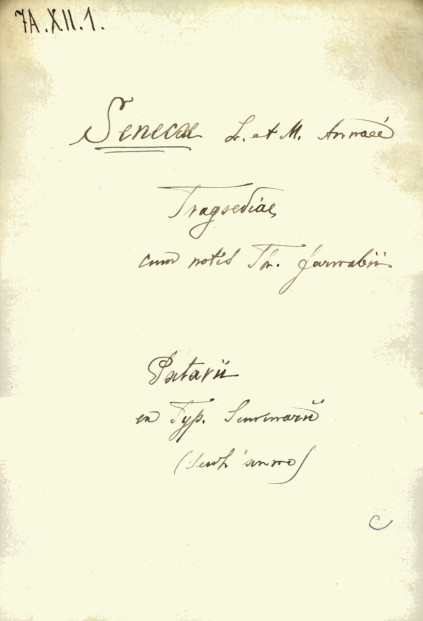 7A.XII.1.
Senecae L. et M. Annaei
Tragoediae
cum notis Th. Farnabii
Patavii
ex Typ. Seminarii
(senz'anno)
C